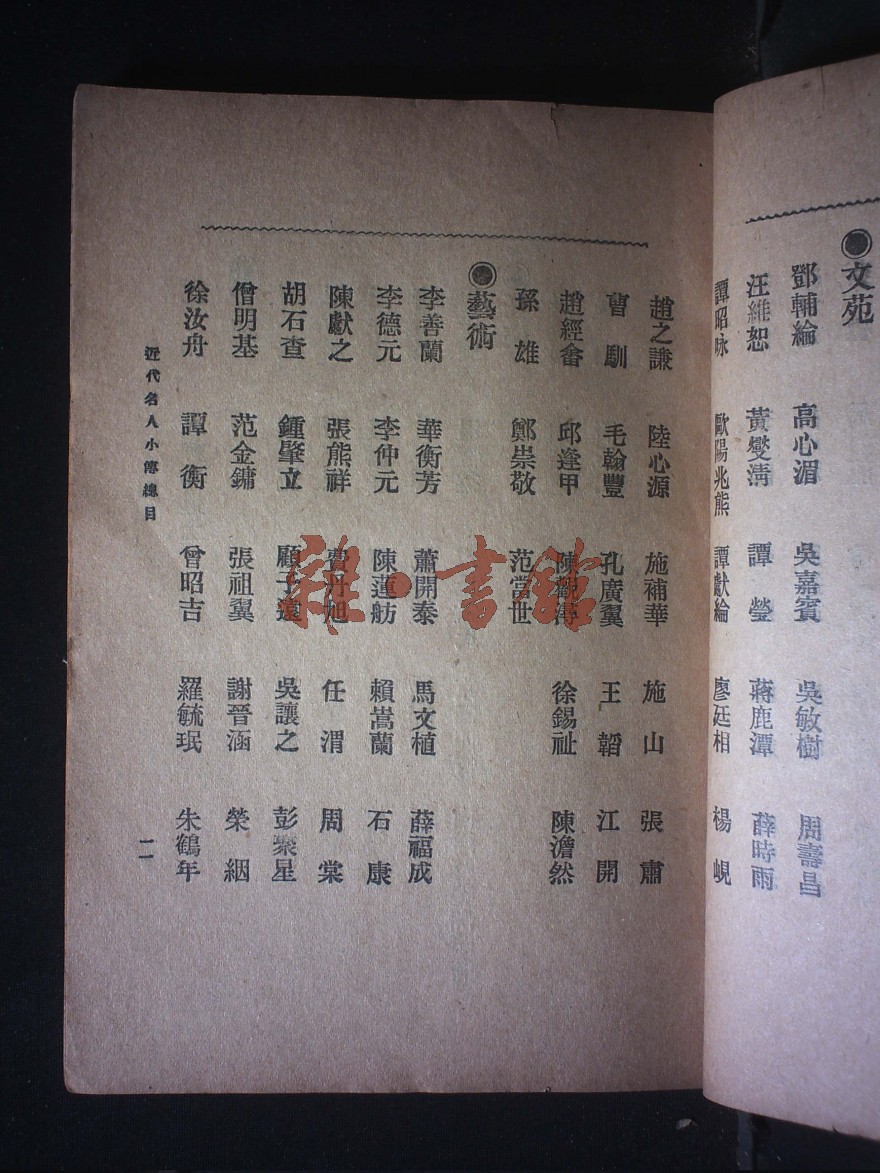 ◉文苑
鄧輔綸 高心湄 吳嘉賓 吳敏樹 周壽昌
汪維恕 黃燮清 譚瑩 蔣鹿潭 薛時雨
譚昭咏 歐陽兆熊 譚獻綸 廖廷相 楊峴
趙之謙 陸心源 施補華 施山 張肅
曹馴 毛翰豐 孔廣翼 王韜 江開
趙經畬 邱逢甲 徐錫祉 陳澹然
孫雄 鄭崇敬 范當世
◉藝術
李善蘭 華衡芳 蕭開泰 馬文植 薛福成
李德元 李仲元 陳蓮舫 賴嵩蘭 石康
陳獻之 張熊祥 費丹旭 任渭 周棠
胡石查 鍾肇立 顧子遠 吳讓之 彭聚星
僧明基 范金鏞 張祖翼 謝晉涵 榮綑
徐汝舟 譚衡 曾昭吉 羅毓珉 朱鶴年
近代名人小傳總目
二
雜·書館